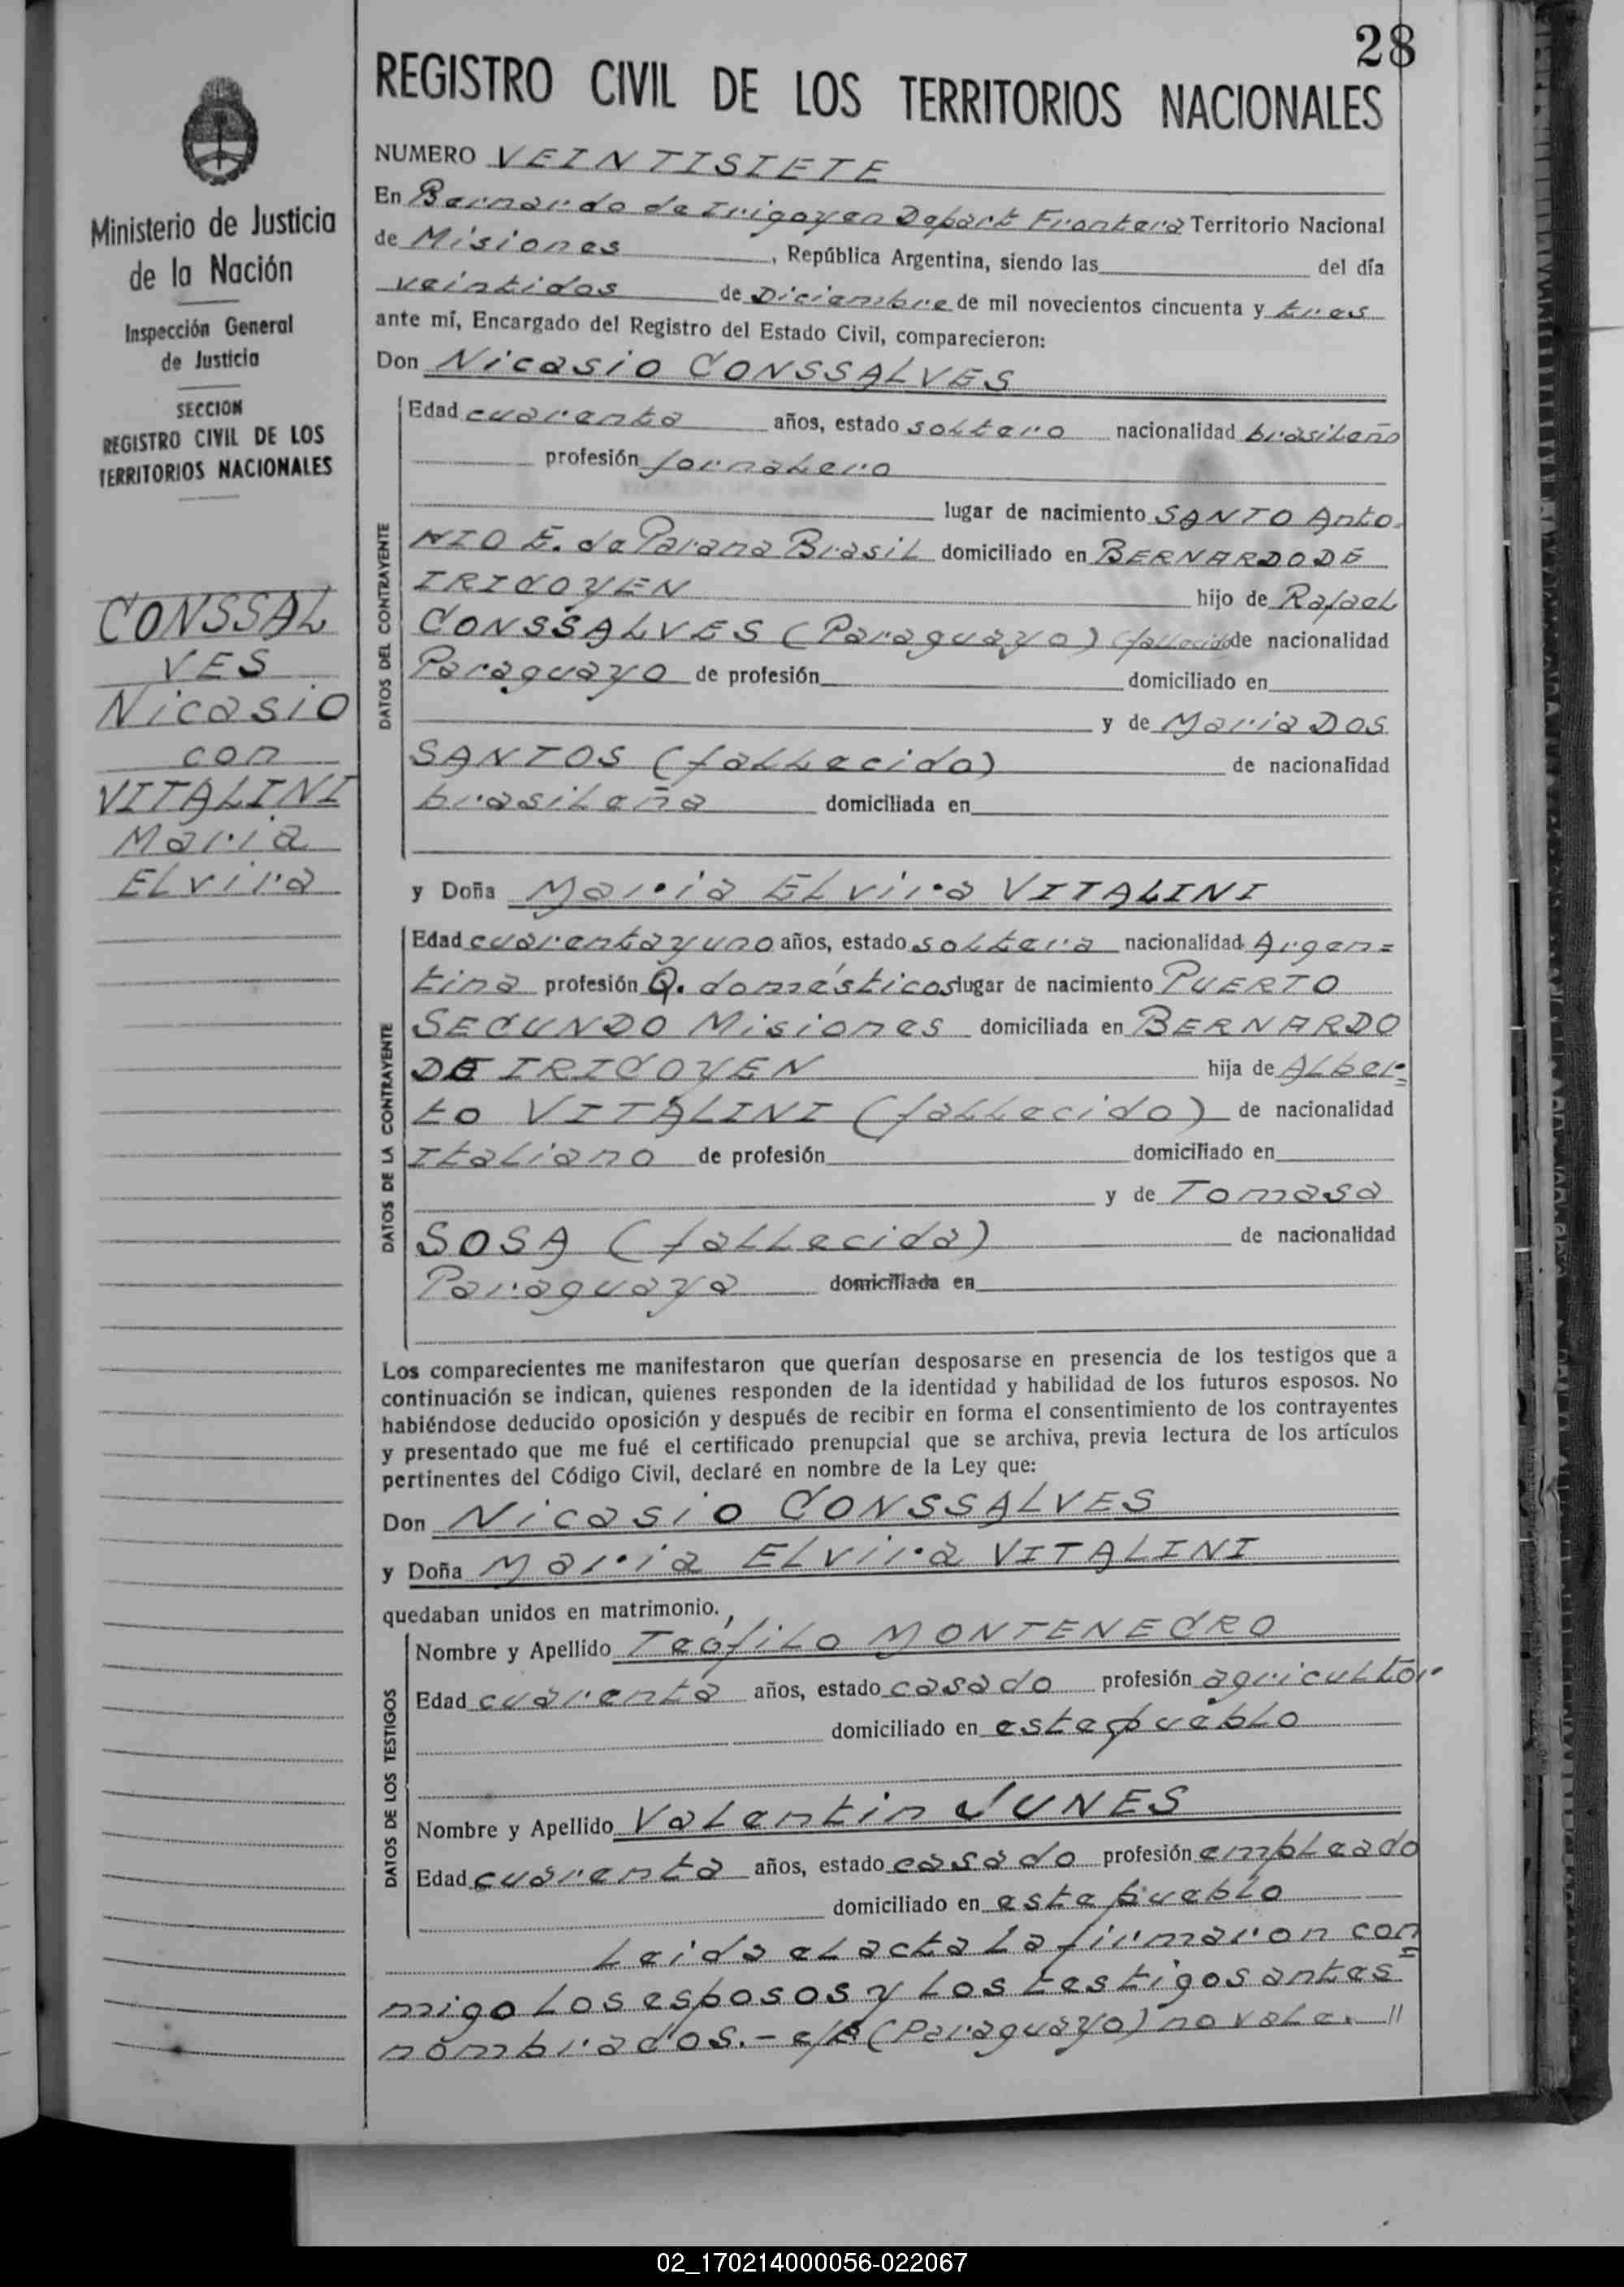 28
REGISTRO CIVIL DE LOS TERRITORIOS NACIONALES
Ministerio de Justicia
de la Nación
Inspección General
de Justicia
SECCION
REGISTRO CIVIL DE LOS
TERRITORIOS NACIONALES
CONSSAL
VES
Nicasio
con
VITALINI
Maria
Elvira
NUMERO VEINTISIETE
En Bernardo de Irigoyen Depart Frontera Territorio Nacional
de Misiones, República Argentina, siendo las del día
veintidos de Diciembre de mil novecientos cincuenta y tres
ante mí, Encargado del Registro del Estado Civil, comparecieron:
Don Nicasio CONSSALVES
DATOS DEL CONTRAYENTE
Edad cuarenta años, estado soltero nacionalidad brasileño
profesión jornalero
lugar de nacimiento SANTO Anto
NIO E. de Parana Brasil domiciliado en BERNARDO DE
IRIGOYEN hijo de Rafael
CONSSALVES (Paraguayo) (fallecido) de nacionalidad
Paraguayo de profesión domiciliado en
y de Maria DOS
SANTOS (fallecida) de nacionalidad
brasileña domiciliada en
y Doña Maria Elvira VITALINI
DATOS DE LA CONTRAYENTE
Edad cuarenta y uno años, estado soltera nacionalidad Argen=
tina profesión Q. domésticos lugar de nacimiento PUERTO
SEGUNDO Misiones domiciliada en BERNARDO
DE IRIGOYEN hija de Alber=
to VITALINI (fallecido) de nacionalidad
Italiano de profesión domiciliado en
y de Tomasa
SOSA (fallecida) de nacionalidad
Paraguaya domiciliada en
Los comparecientes me manifestaron que querían desposarse en presencia de los testigos que a
continuación se indican, quienes responden de la identidad y habilidad de los futuros esposos. No
habiéndose deducido oposición y después de recibir en forma el consentimiento de los contrayentes
y presentado que me fué el certificado prenupcial que se archiva, previa lectura de los artículos
pertinentes del Código Civil, declaré en nombre de la Ley que:
Don Nicasio CONSSALVES
y Doña Maria Elvira VITALINI
quedaban unidos en matrimonio.
DATOS DE LOS TESTIGOS
Nombre y Apellido Teófilo MONTENEGRO
Edad cuarenta años, estado casado profesión agricultor
domiciliado en este pueblo
Nombre y Apellido Valentin JUNES
Edad cuarenta años, estado casado profesión empleado
domiciliado en este pueblo
Leida el acta la firmaron con=
migo los esposos y los testigos antes
nombrados.- e/p (Paraguayo) no vale. //
02_170214000056-022067